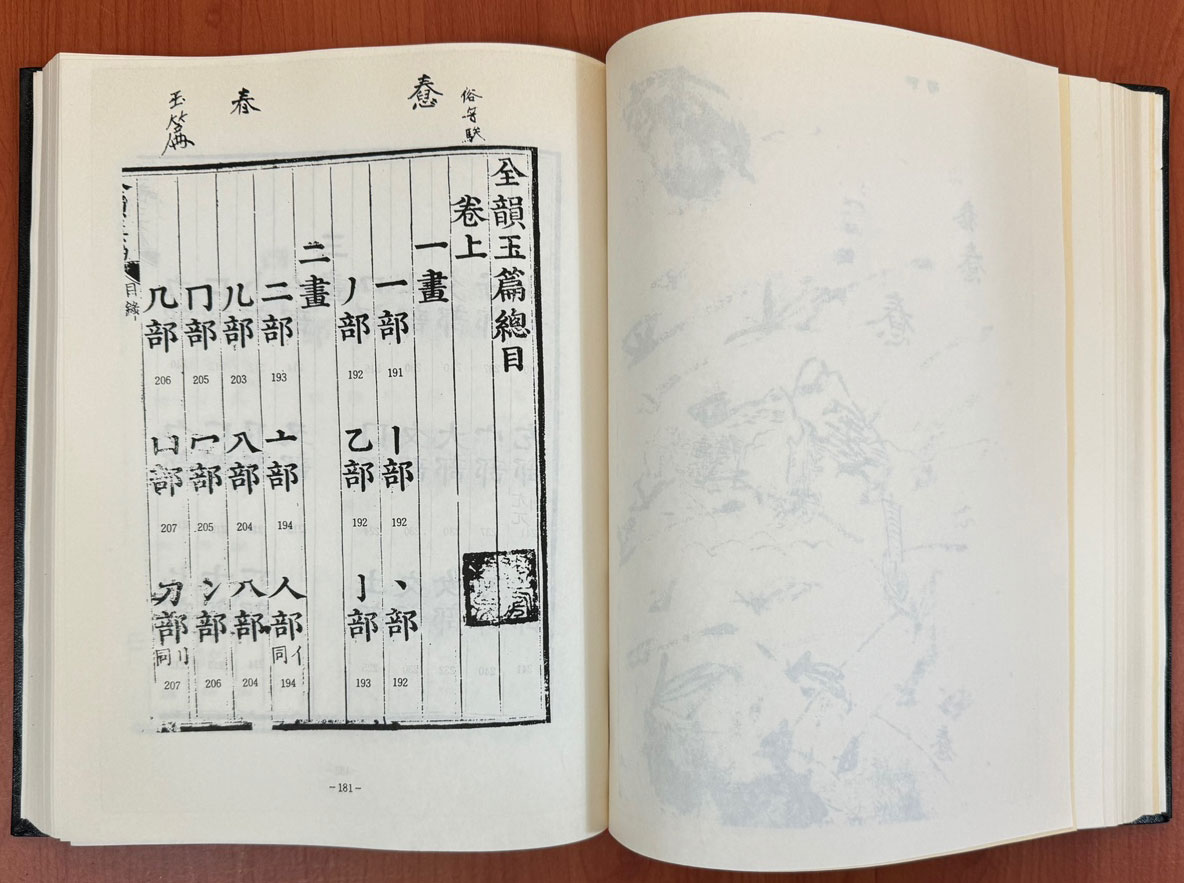 俗字䭾
惷
春
玉篇
全韻玉篇總目
卷上
一畫
一部 191
丨部 192
丶部 192
丿部 192
乙部 192
亅部 193
二畫
二部 193
亠部 194
人部 亻同 194
儿部 203
入部 204
八部 204
冂部 205
冖部 205
冫部 206
几部 206
凵部 207
刀部 刂同 207
目錄
-181-